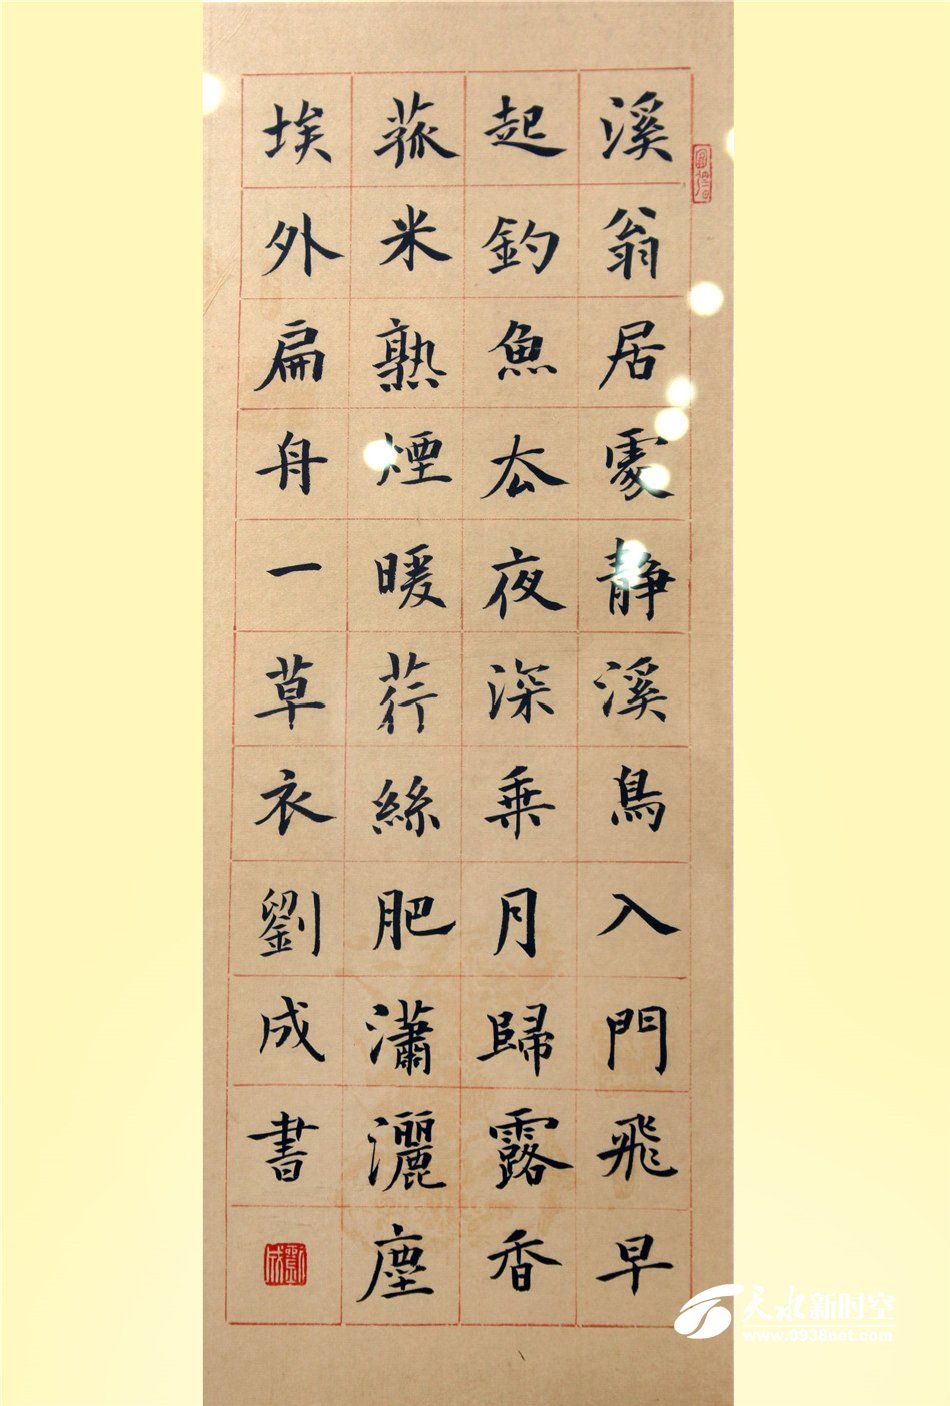 溪翁居處靜溪鳥入門飛早
起釣魚厺夜深乗月歸露香
菰米熟煙暖荇絲肥瀟灑塵
埃外扁舟一草衣劉成書
天水新时空
www.0938net.com